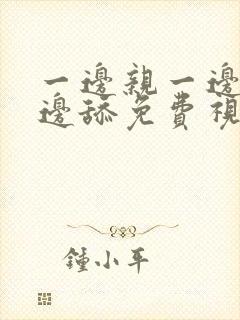 一邊親一邊
邊舔免費視
鍾小平